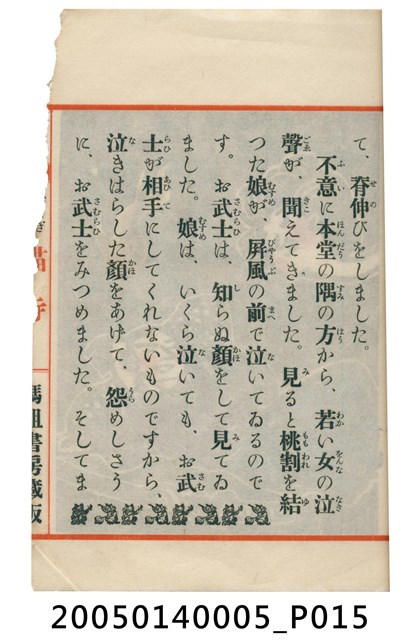 て、脊伸びをしました。
不意に本堂の隅の方から、若い女の泣
聲が、聞えてきました。見ると桃割を結
つた娘が、屏風の前で泣いてゐるので
す。お武士は、知らぬ顔をして見てゐ
ました。娘は、いくら泣いても、お武
士が相手にしてくれないものですから、
泣きはらした顔をあげて、怨めしさう
に、お武士をみつめました。そしてま
媽祖書房藏版
20050140005_P015